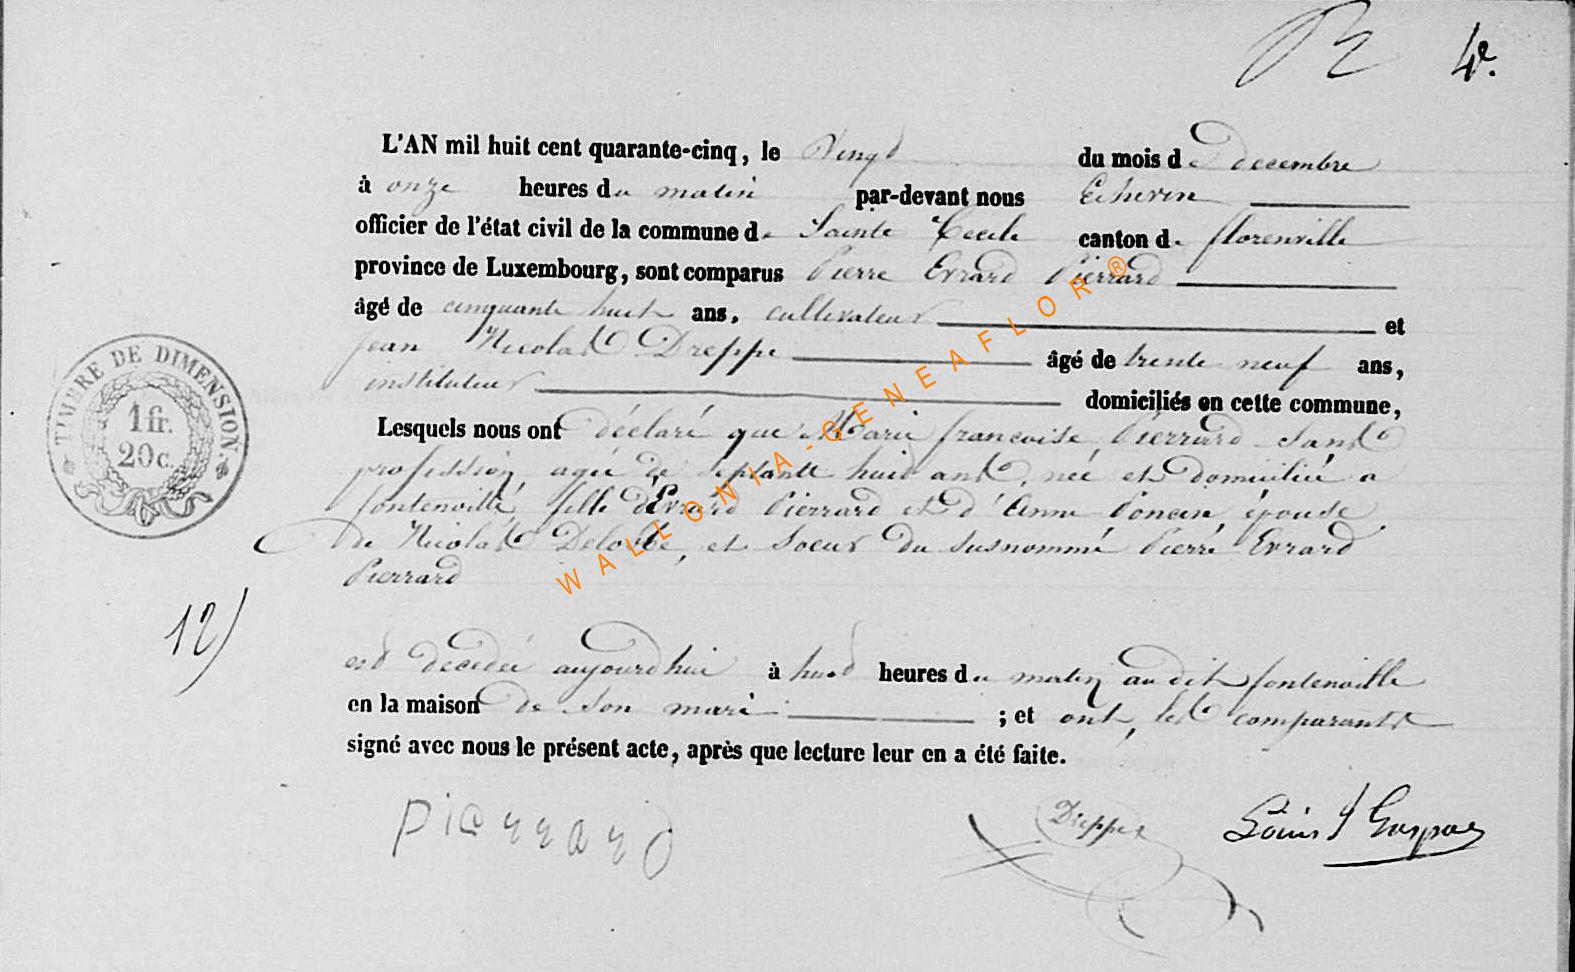 4e.
L'AN mil huit cent quarante-cinq, le Vingt du mois de decembre
à onze heures du matin par-devant nous Echevin
officier de l'état civil de la commune de Sainte Cecile canton de florenville
province de Luxembourg, sont comparus Pierre Evrard Pierrard
âgé de cinquante huit ans, cultivateur et
jean Nicolas Dreppe âgé de trente neuf ans,
instituteur domiciliés en cette commune,
Lesquels nous ont déclaré que Marie françoise Pierrard Sans
profession, agée de septante huit ans, née et domiciliée a
fontenoille, fille d'Evrard Pierrard et d'Anne Poncin, épouse
de Nicolas, et soeur du susnommé Pierre Evrard
Pierrard
12)
est décédée aujourdhui à huit heures du matin au dit fontenoille
en la maison de son mari ; et ont, les comparants
signé avec nous le présent acte, après que lecture leur en a été faite.
pierrard Dreppe Louis J Gaspar
TIMBRE DE DIMENSION.
1 fr.
20 c.
WALLONIA-GENEAFLOR ®